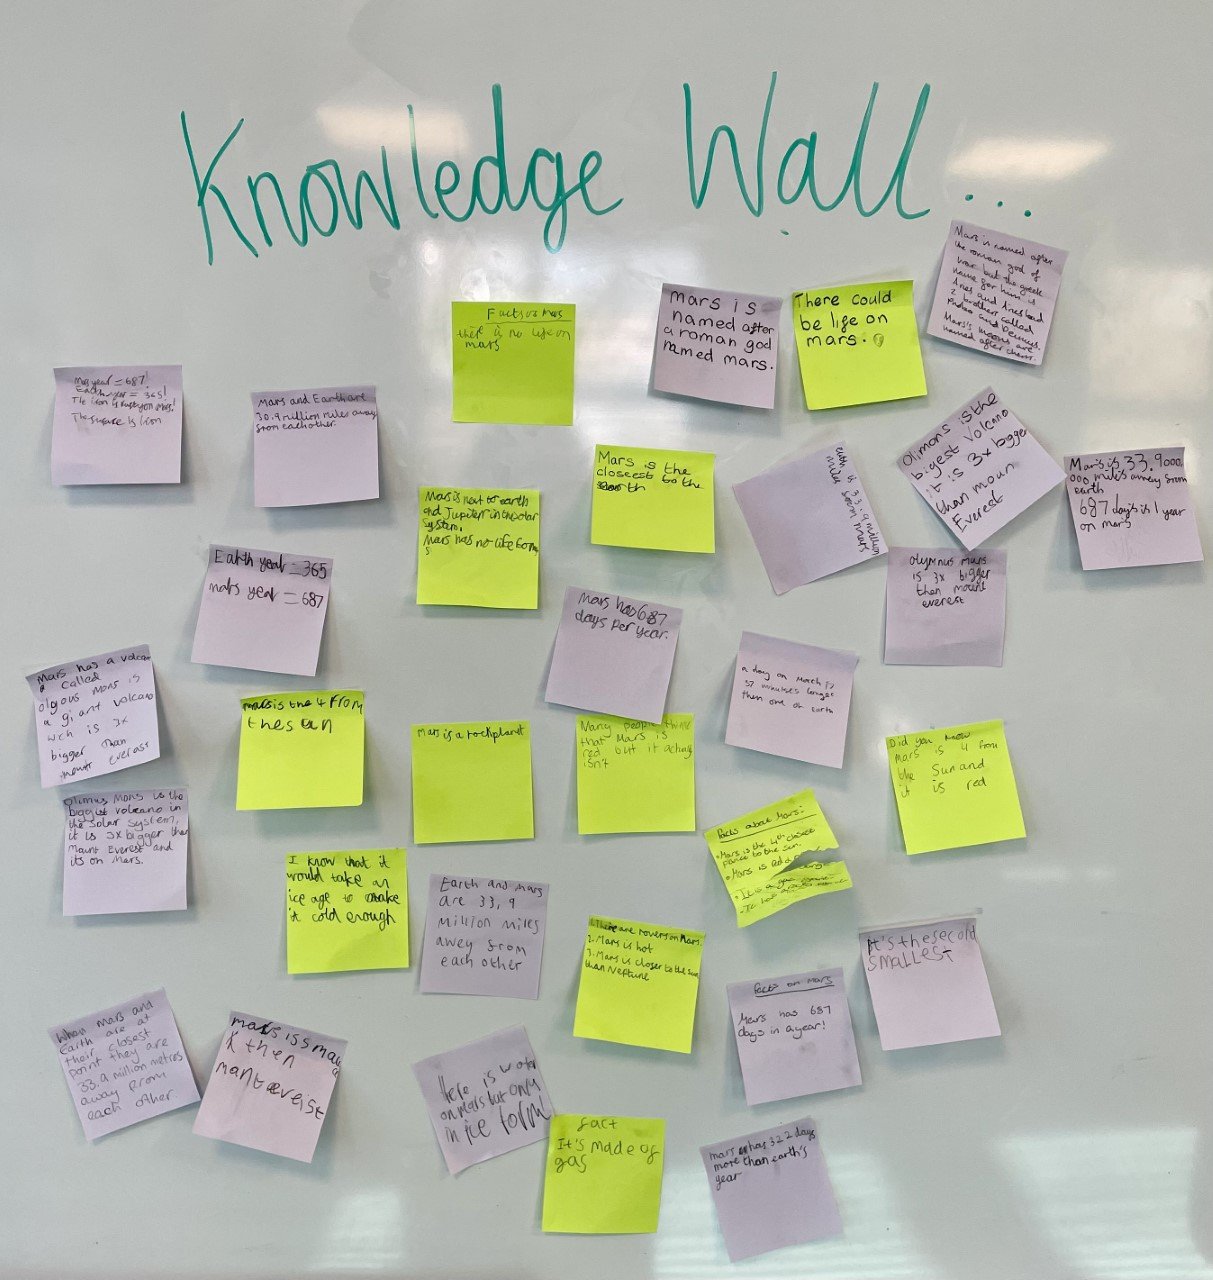 Knowledge Wall...
Mars is named after
the roman god of
war but the greek
name for him is
Ares and Ares had
2 brothers called
Mars's moons are
named after them.
Facts on mars
there is no life on
mars
Mars is
named after
a roman god
named mars.
There could
be life on
mars.
year = 687!
year = 365!
The iron is rust on Mars!
The surface is iron
Mars and Earth are
30.9 million miles away
from each other.
Mars is the
closeest to the
earth
Mars is next to earth
and Jupiter in the solar
System.
Mars has no life forms
earth is 33.9 million
miles from mars
Olimons is the
bigest Volcano
it is 3x bigger
than moun
Everest
Mars is 33.9000,
000 miles away from
earth
687 days is 1 year
on mars
Earth year = 365
mars year = 687
Mars has 687
days per year.
olymnus Mars
is 3x bigger
then mount
everest
Mars has a volcan
o called
olgous mons is
a giant volcano
wch is 3x
bigger than
mount everass
mars is the 4 from
the sun
Mars is a rock planet
Many people think
that Mars is
red but it actually
isn't
a day on
37 minutes longer
then one of earth
Did you know
mars is 4 from
the Sun and
it is red
Olimus Mons is the
biggist volcano in
the solar system,
it is 3x bigger then
Mount Everest and
its on Mars.
I know that it
would take an
ice age to make
it cold enough
Earth and mars
are 33,9
million miles
awey from
each other
Facts about Mars:
• Mars is the 4th closest
to the sun.
• Mars is red
• It is a
1. There are rovers on Mars.
2. Mars is hot
3. Mars is closer to the sun
than Neptune
It's the second
smallest
Facts on Mars
Mars has 687
days in a year!
When mars and
Earth are at
their closest
point they are
33.9 million metres
away from
each other.
mars is small
then
mant evreist
there is water
on mars but only
in ice form!
fact
It's made of
gas
mars has 322 days
more than earth's
year